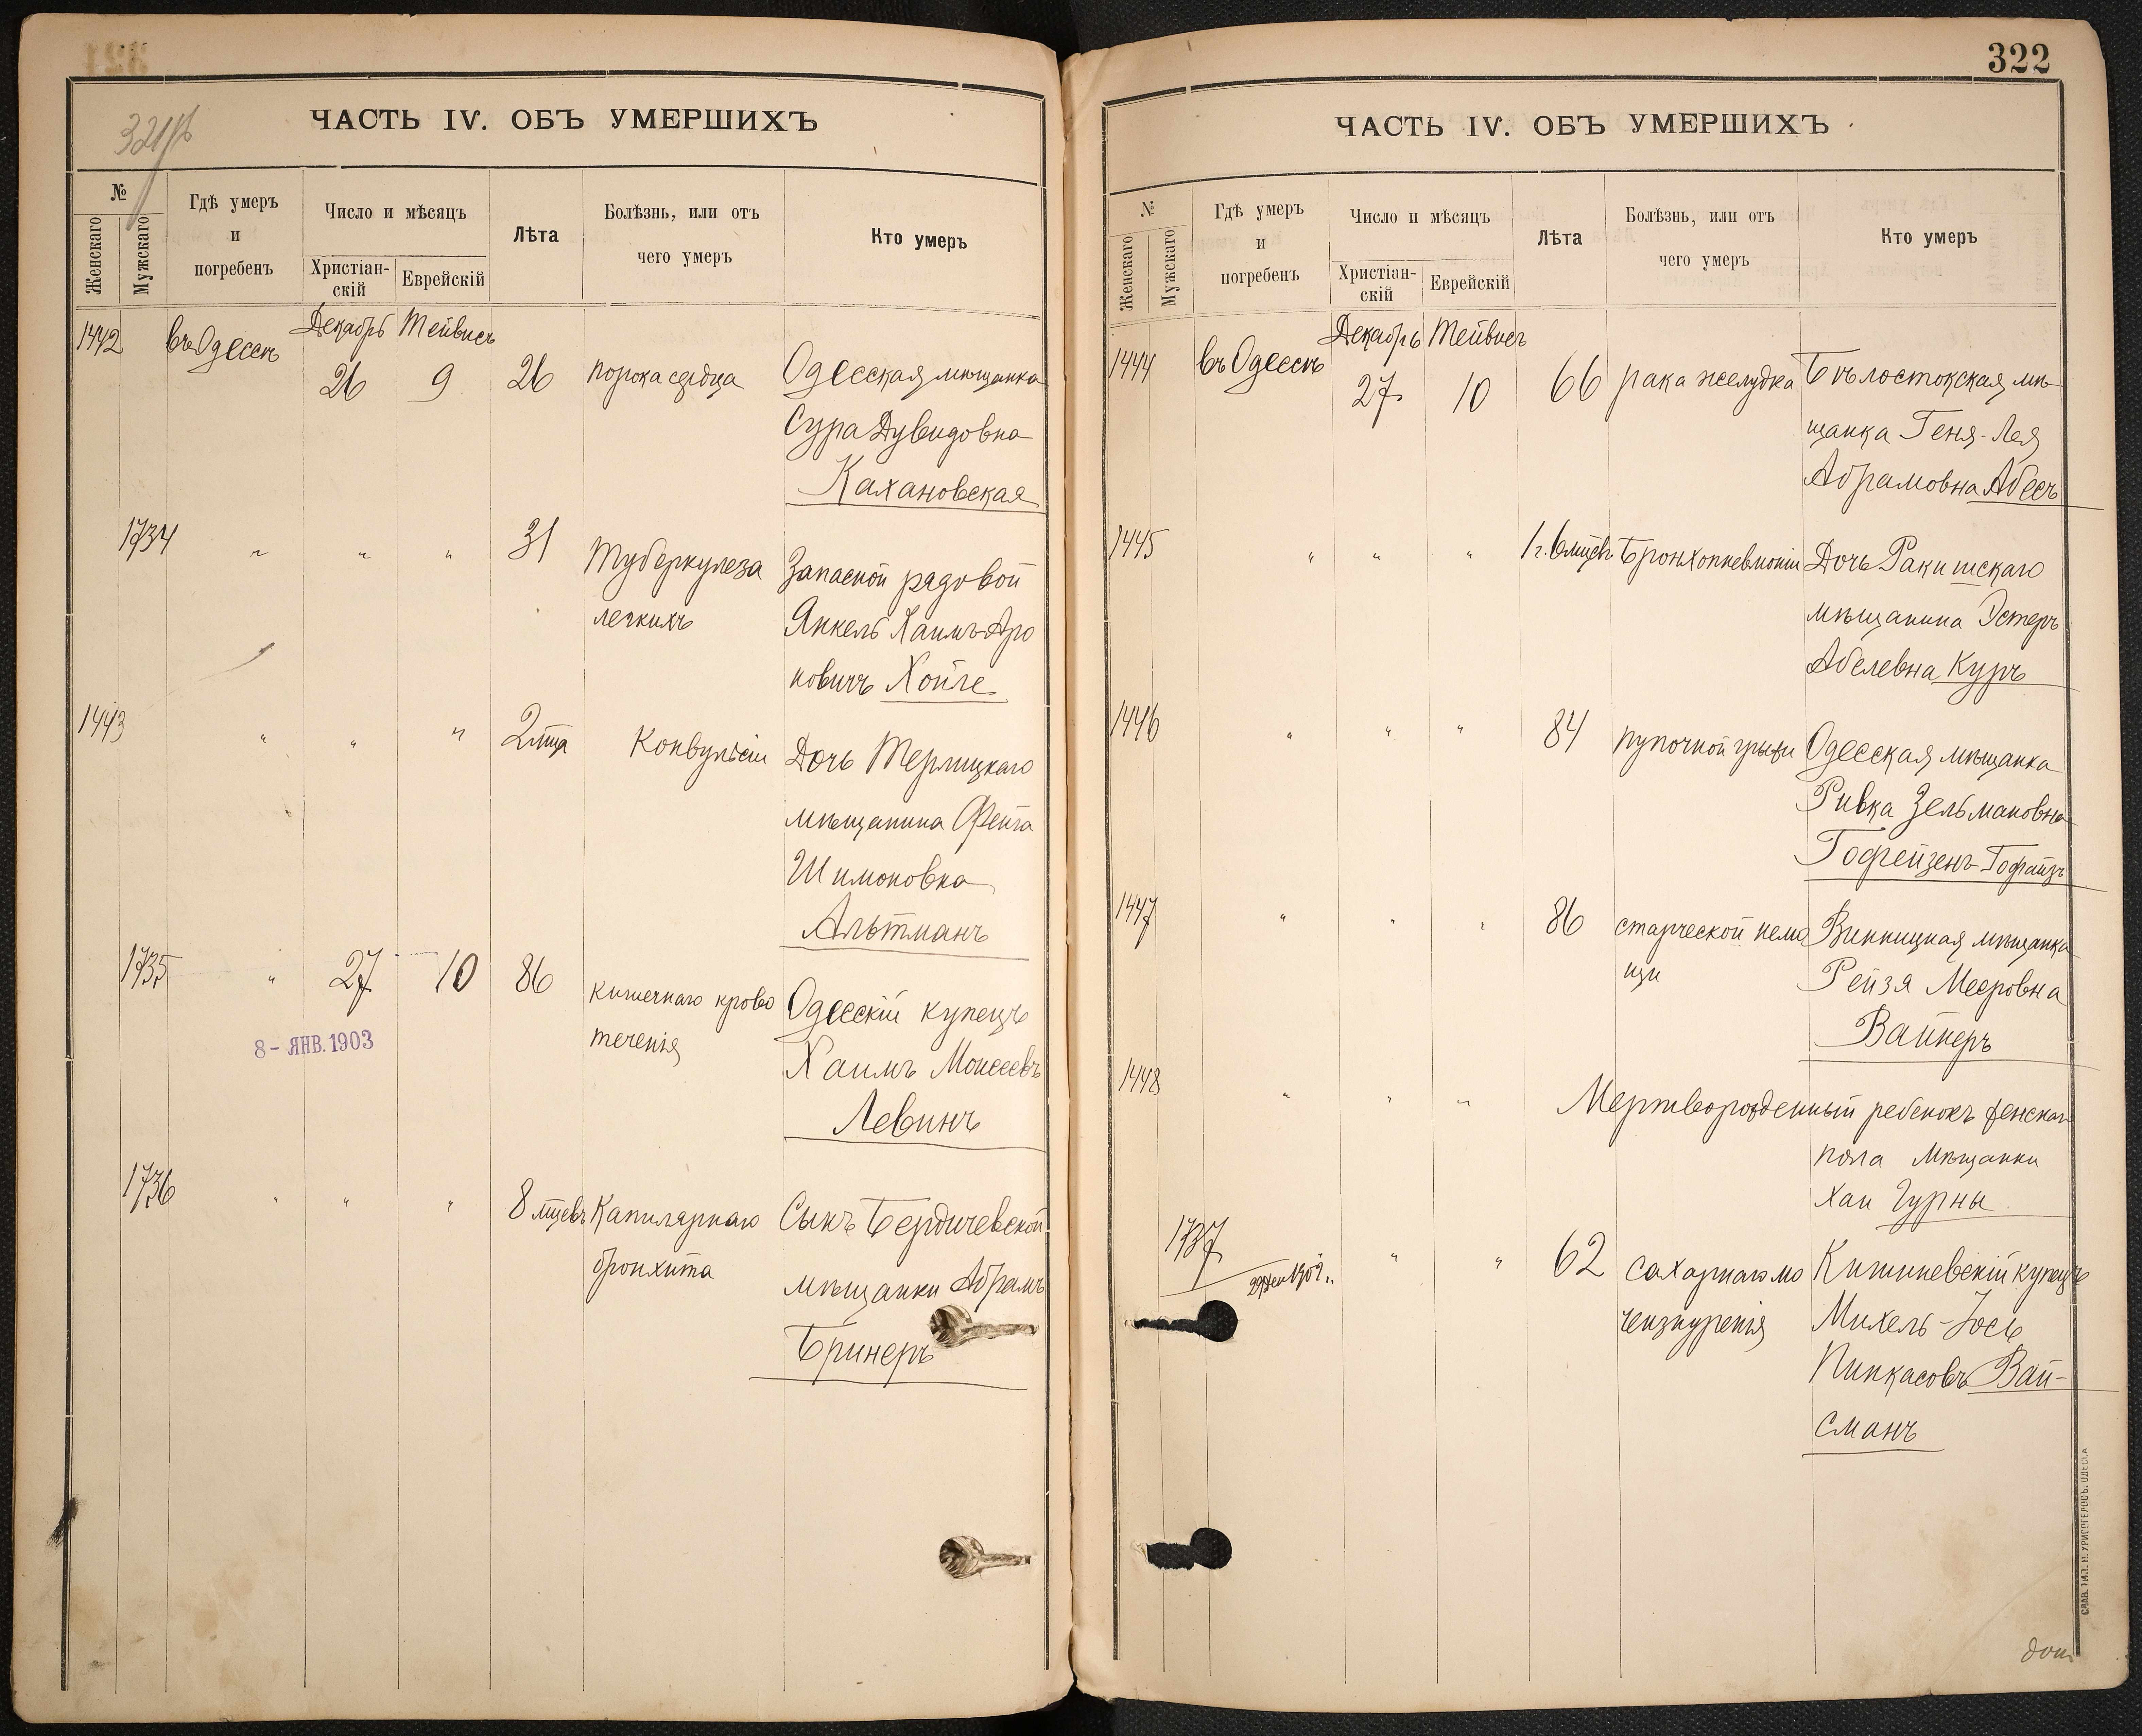 321об
ЧАСТЬ IV. ОБЪ УМЕРШИХЪ
№
Женскаго
Мужскаго
Гдѣ умеръ
и
погребенъ
Число и мѣсяцъ
Христіан-
скій
Еврейскій
Лѣта
Болѣзнь, или отъ
чего умеръ
Кто умеръ
1442 въ Одессѣ Декабрь Тейвисъ
26 9 26 порока сердца Одесская мѣщанка
Сура Дувидовна
Кахановская
1734 " " " 31 Туберкулеза Запасной рядовой
легкихъ Янкель Хаимъ-Аро
новичъ Хойле
1443 " " " 2 мца Конвульсіи Дочь Терлицкаго
мѣщанина Фейга
Шимоновна
Альтманъ
1735 " 27 10 86 кишечнаго крово Одесскій купецъ
теченія Хаимъ Моисеевъ
Левинъ
8-ЯНВ.1903
1736 " " " 8 мцевъ Капилярнаго Сынъ Бердичевской
бронхита мѣщанки Абрамъ
Бринеръ
322
ЧАСТЬ IV. ОБЪ УМЕРШИХЪ
№
Женскаго
Мужскаго
Гдѣ умеръ
и
погребенъ
Число и мѣсяцъ
Христіан-
скій
Еврейскій
Лѣта
Болѣзнь, или отъ
чего умеръ
Кто умеръ
1444 въ Одессѣ Декабрь Тейвисъ
27 10 66 рака желудка Бѣлостокская мѣ
щанка Геня-Лея
Абрамовна Абесъ
1445 " " " 1 г. 6 мцевъ Бронхопневмоніи Дочь Ракишскаго
мѣщанина Эстеръ
Абелевна Куръ
1446 " " " 84 пупочной грыжи Одесская мѣщанка
Ривка Зельмановна
Гофейзенъ-Гофайзъ
1447 " " " 86 старческой немо Винницкая мѣщанка
щи Рейзя Мееровна
Вайнеръ
1448 " " " Мертворожденный ребенокъ женскаго
пола мѣщанки
Хаи Гурны
1737 29 Дек 1902 г. " " 62 сахарнаго мо Кишиневскій купецъ
чеизнуренія Михель-Іось
Пинкасовъ Вай-
сманъ